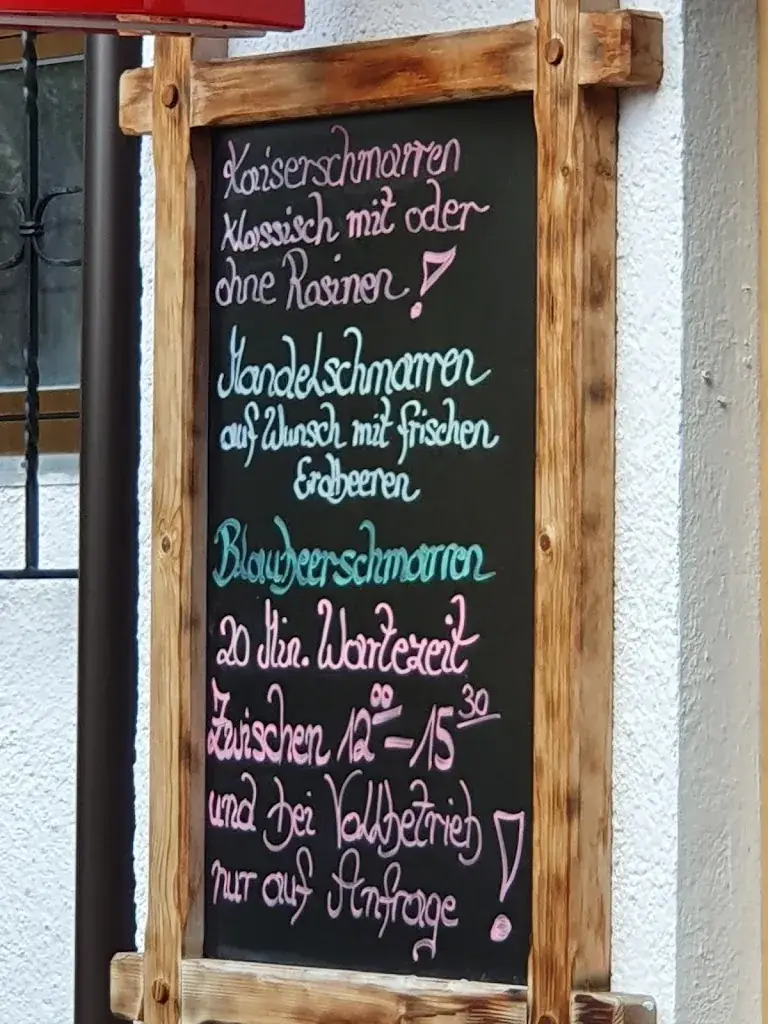 Kaiserschmarren
klassisch mit oder
ohne Rosinen!
Mandelschmarren
auf Wunsch mit frischen
Erdbeeren
Blaubeerschmarren
20 Min. Wartezeit
Zwischen 12⁰⁰-15³⁰
und bei Vollbetrieb
nur auf Anfrage!